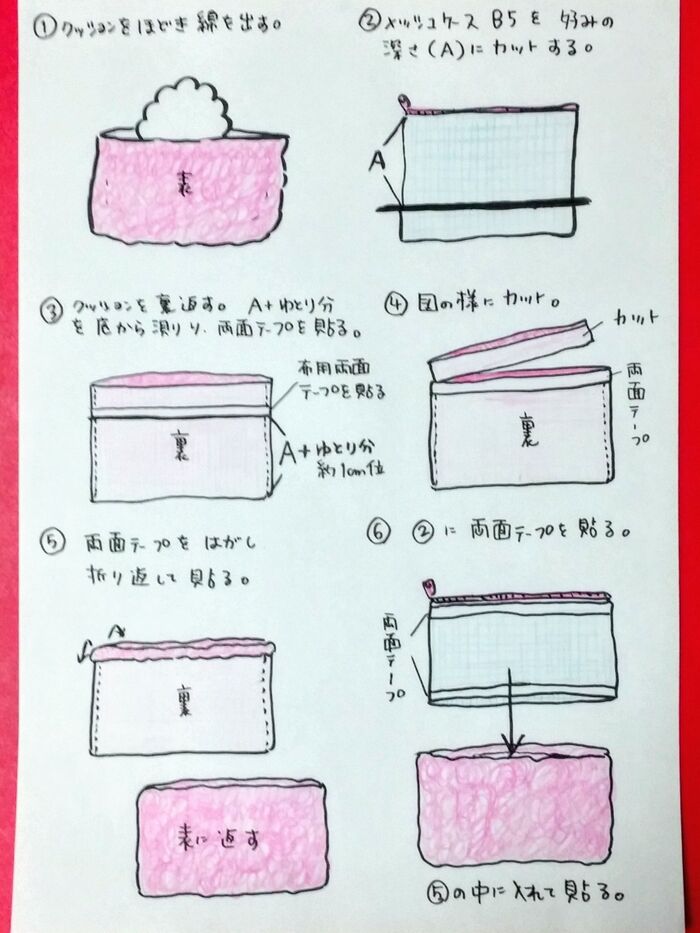 ① クッションをほどき綿を出す。
表
② メッシュケース B5を 好みの
深さ(A)にカットする。
A
③ クッションを裏返す。 A+ゆとり分
を底から測り、両面テープを貼る。
布用両面
テープを貼る
裏
A+ゆとり分
約1cm位
④ 図の様にカット。
カット
両面テープ
裏
⑤ 両面テープをはがし
折り返して貼る。
裏
表に返す
⑥ ②に両面テープを貼る。
両面テープ
⑤の中に入れて貼る。